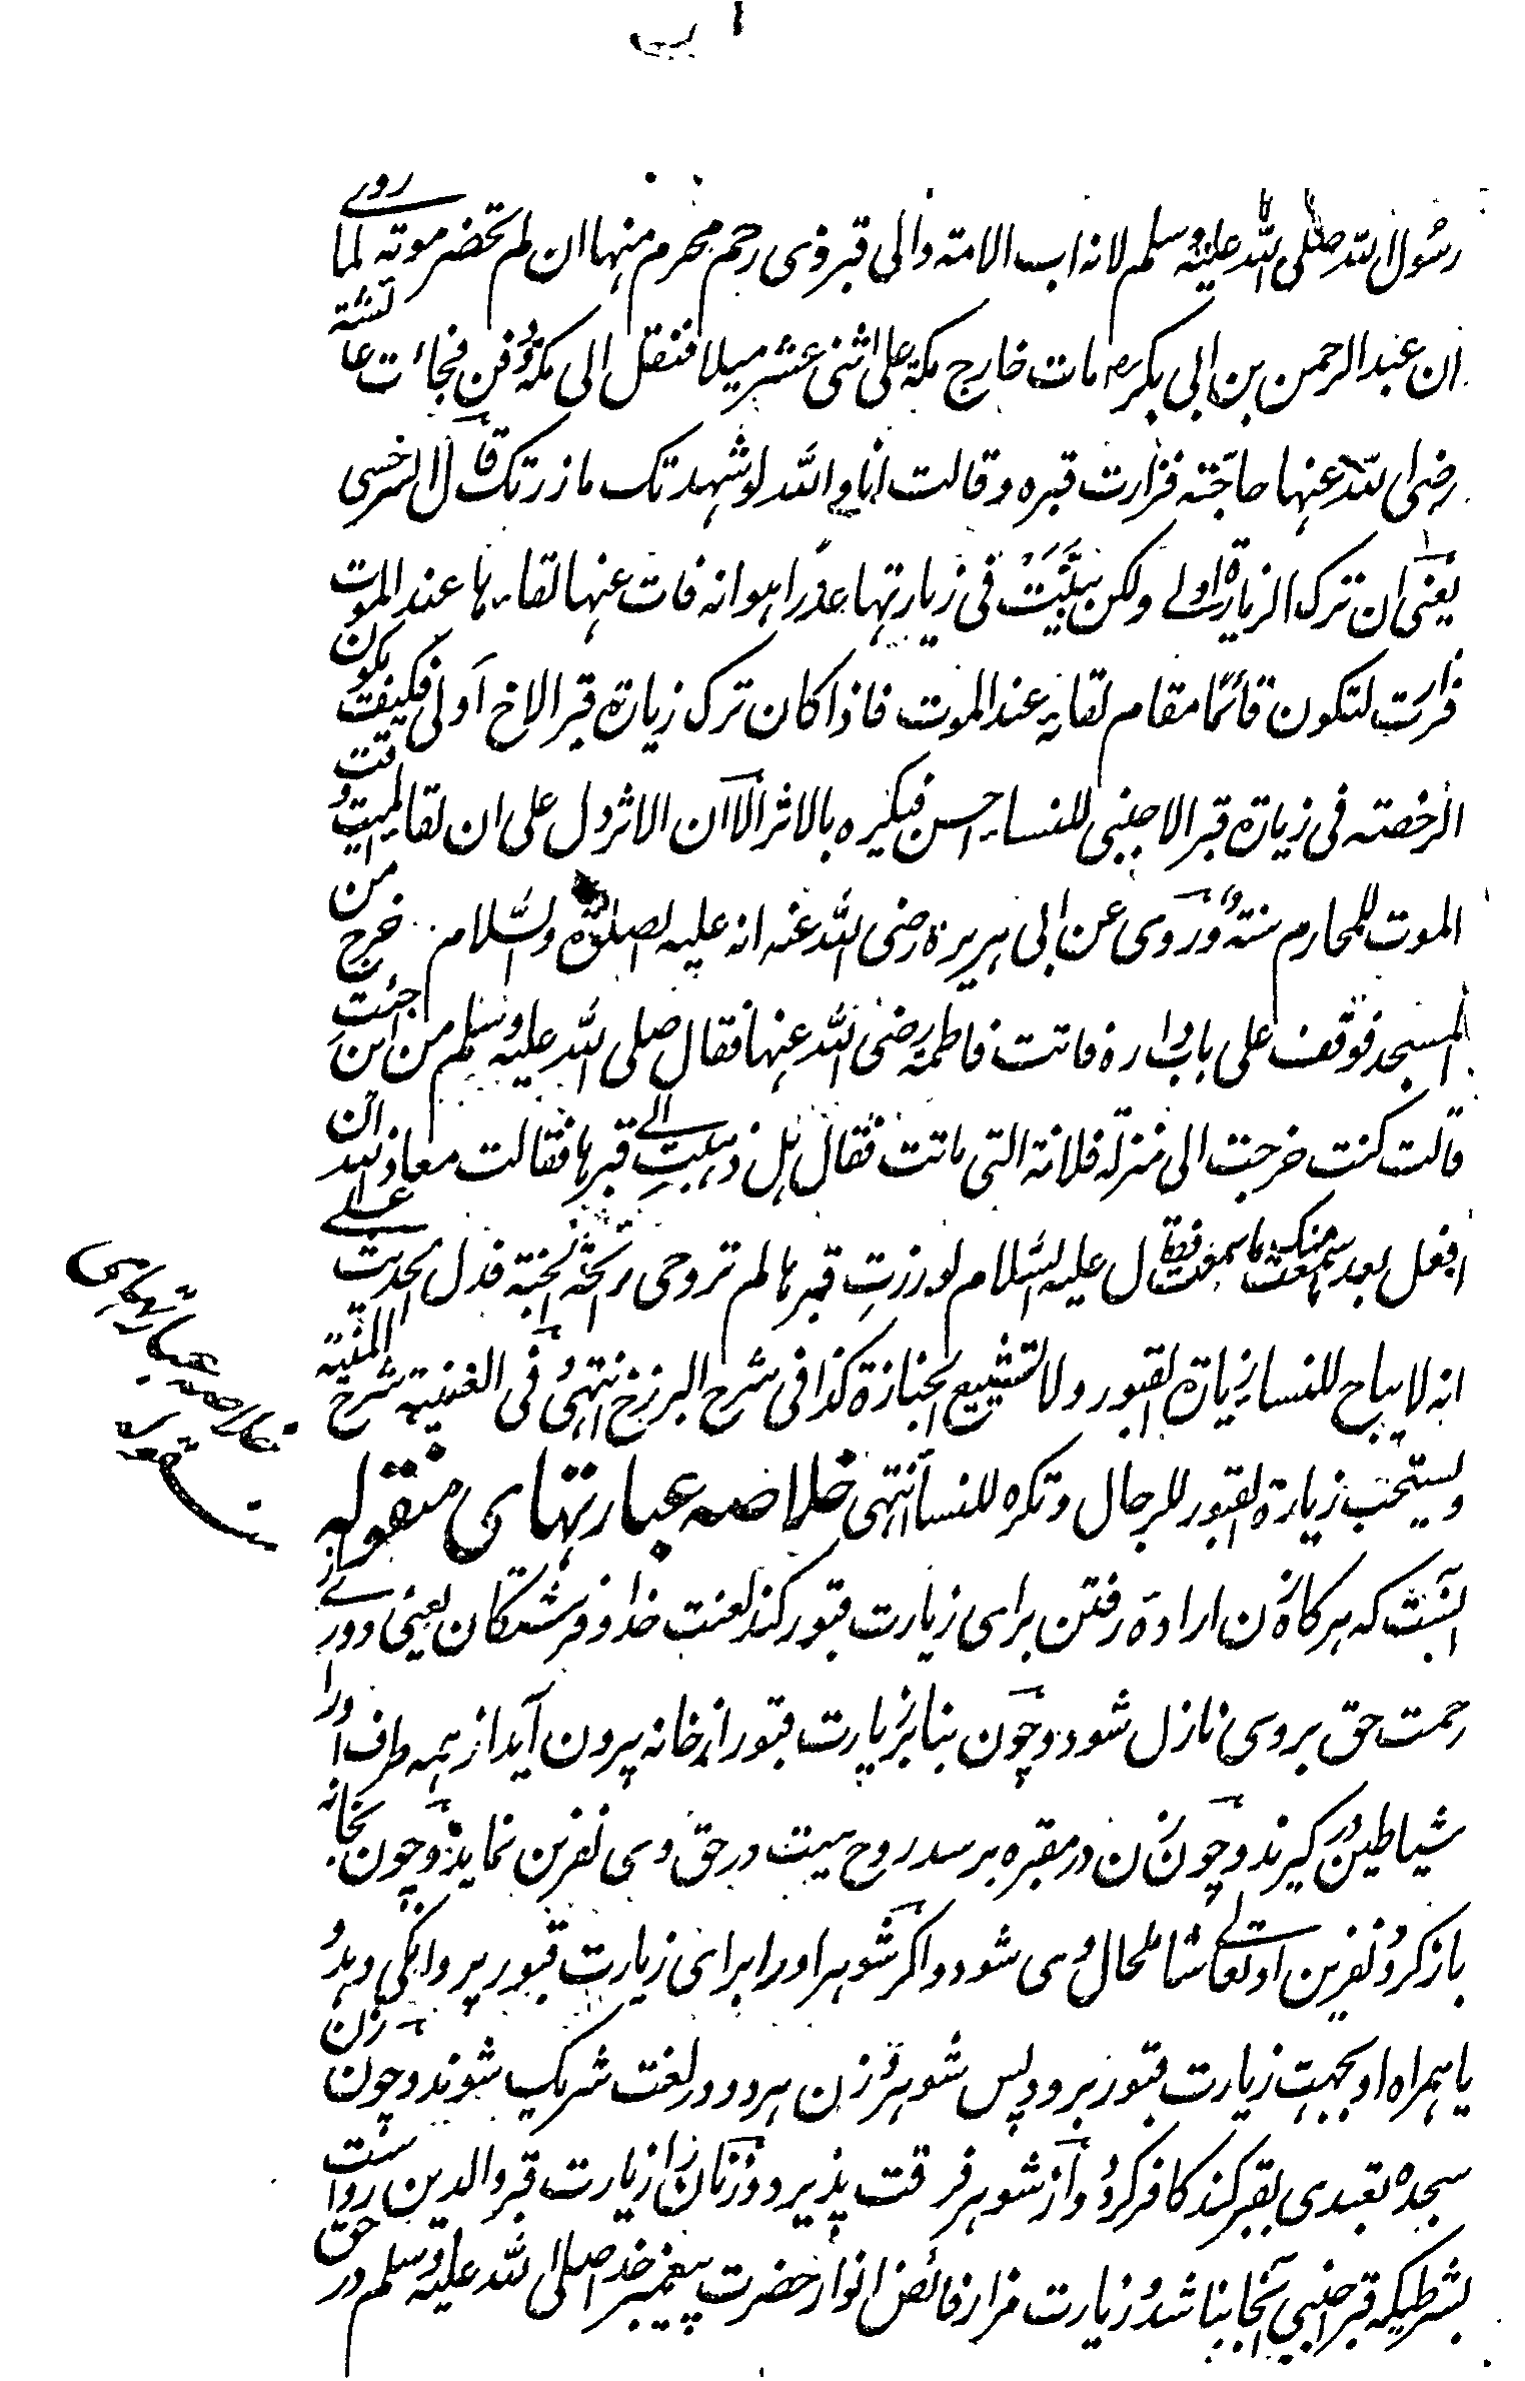 رسول الله صلی الله علیه وسلم لانه اب الامته والی قبر ذی رحم محرم منها ان لم تحضر موته لما روے
ان عبد الرحمن بن ابی بکر رض مات خارج مکة علی اثنی عشر میلا فنقل الی مکة ودفن فجائت عائشة
رضی الله عنها حاجة فزارت قبره وقالت اما والله لو شهدتک ما زرتک قال السرخسی
یعنی ان ترک الزیارة اولے ولکن بینت فی زیارتها عذرا هو انه فات عنها لقاء یها عند الموت
فزارت لتکون قائما مقام لقایه عند الموت فاذا کان ترک زیارة قبر الاخ اولی فکیف یکون
الرخصته فی زیارة قبر الاجنبی للنساء احسن فیکره بالاثر الا ان الاثر دل علی ان لقا المیت وقت
الموت للمحارم سنة وروی عن ابی هریرة رضی الله عنه انه علیه الصلوة والسلام خرج من
المسجد فوقف علی باب داره فاتت فاطمة رضی الله عنها فقال صلی الله علیه وسلم من این جئت
قالت کنت خرجت الی منزلة فلانة التی ماتت فقال هل ذهبت الے قبرها فقالت معاذ الله ان
افعل بعد سمعت منک ما سمعت فقال علیه السلام لو زرت قبرها لم تروحی رائحة الجنة فدل الحدیث علے
انه لا یباح للنساء زیارة القبور ولا تشییع الجنازة کذا فی شرح البرزخ انتهی وفی الغنیة شرح المنیة
ویستحب زیارة القبور للرجال وتکره للنساء انتهی خلاصه عبارتهای منقوله
اینست که هر کاه زن اراده رفتن برای زیارت قبور کند لعنت خدا و فرشتکان یعنی دورے از
رحمت حق بروی نازل شود و چون بنا بر زیارت قبور از خانه بیرون آید از همه طرف اورا
شیاطین در کیرند و چون زن در مقبره برسد روح میت در حق وی نفرین نماید و چون بخانه
باز کردد نفرین او تعالے شامل حال وی می شود و اکر شوهر اورا برای زیارت قبور پروانکی دهد و
یا همراه او بجهت زیارت قبور برود پس شوهر و زن هر دو در لعنت شریک شوند و چون زن
سجده تعبدی بقبر کند کافر کردد و از شوهر فرقت پذیرد و زنان را زیارت قبر والدین رواست
بشرطیکه قبر اجنبی آنجا نباشد و زیارت مزار فائض انوار حضرت پیغمبر خدا صلی الله علیه وسلم در حق
خلاصه عبارتهای
منقوله